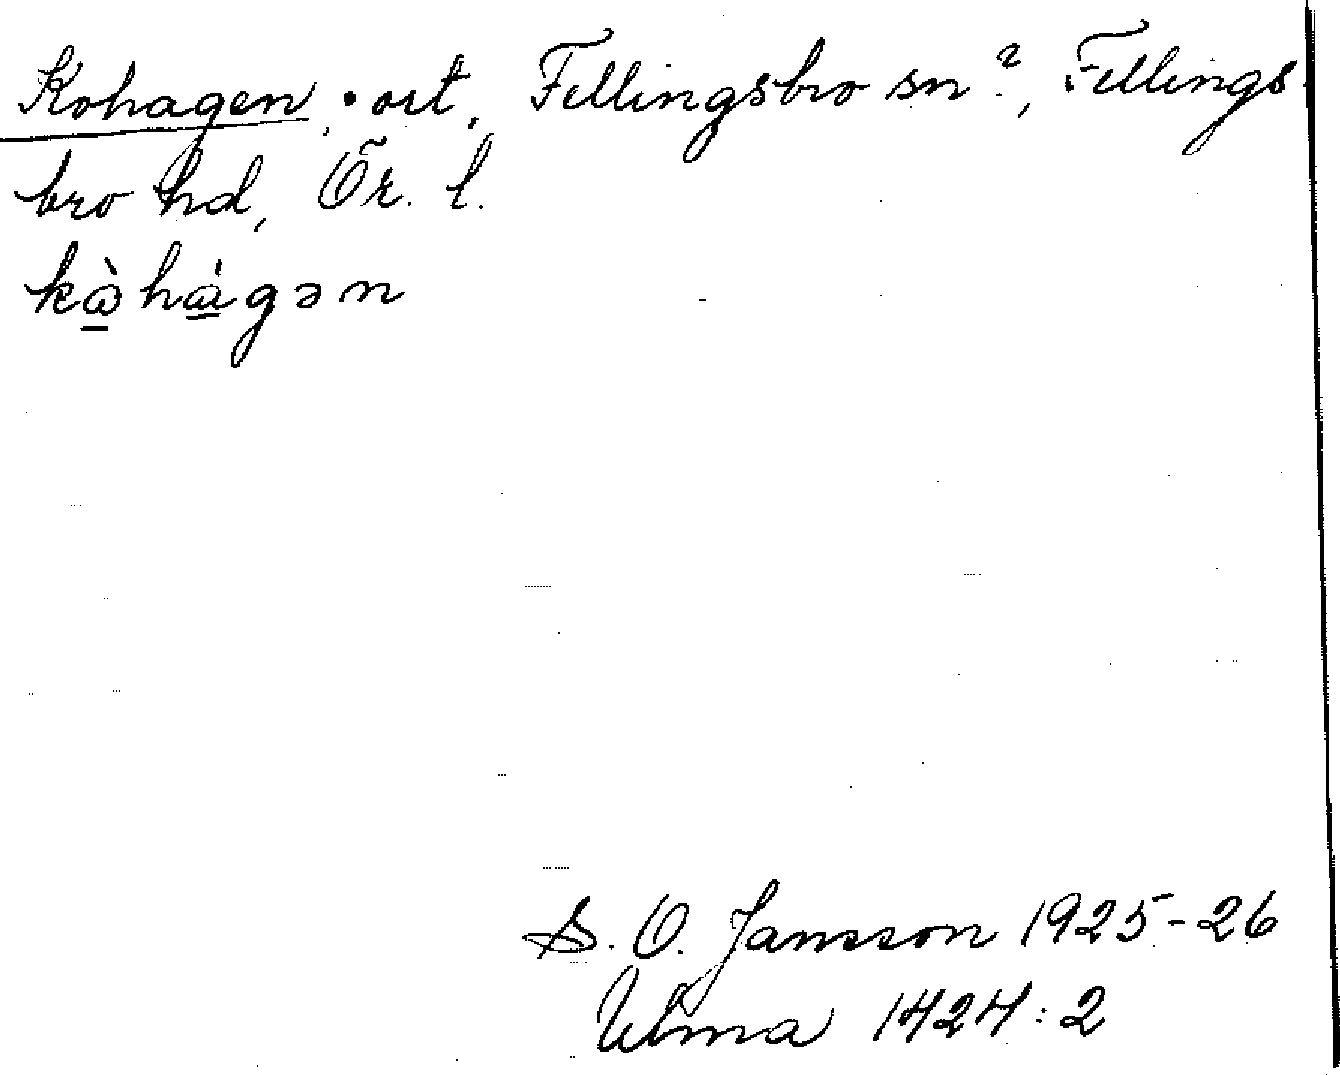 Kohagen, • ort, Fellingsbro sn?, Fellings
bro hd, Ör. l.
kὼ̲hὰ̲gən
S. O. Jansson 1925-26
Ulma 1424:2